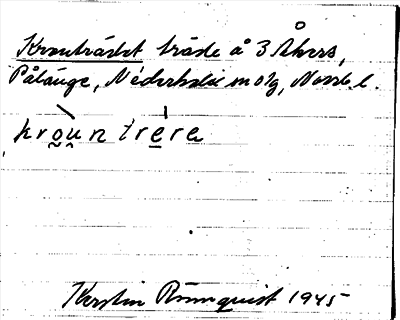 Kronträdet träde å 3 Åkers,
Pålänge, Nederkalix
kroun trere
Kerstin Rönnquist 1945